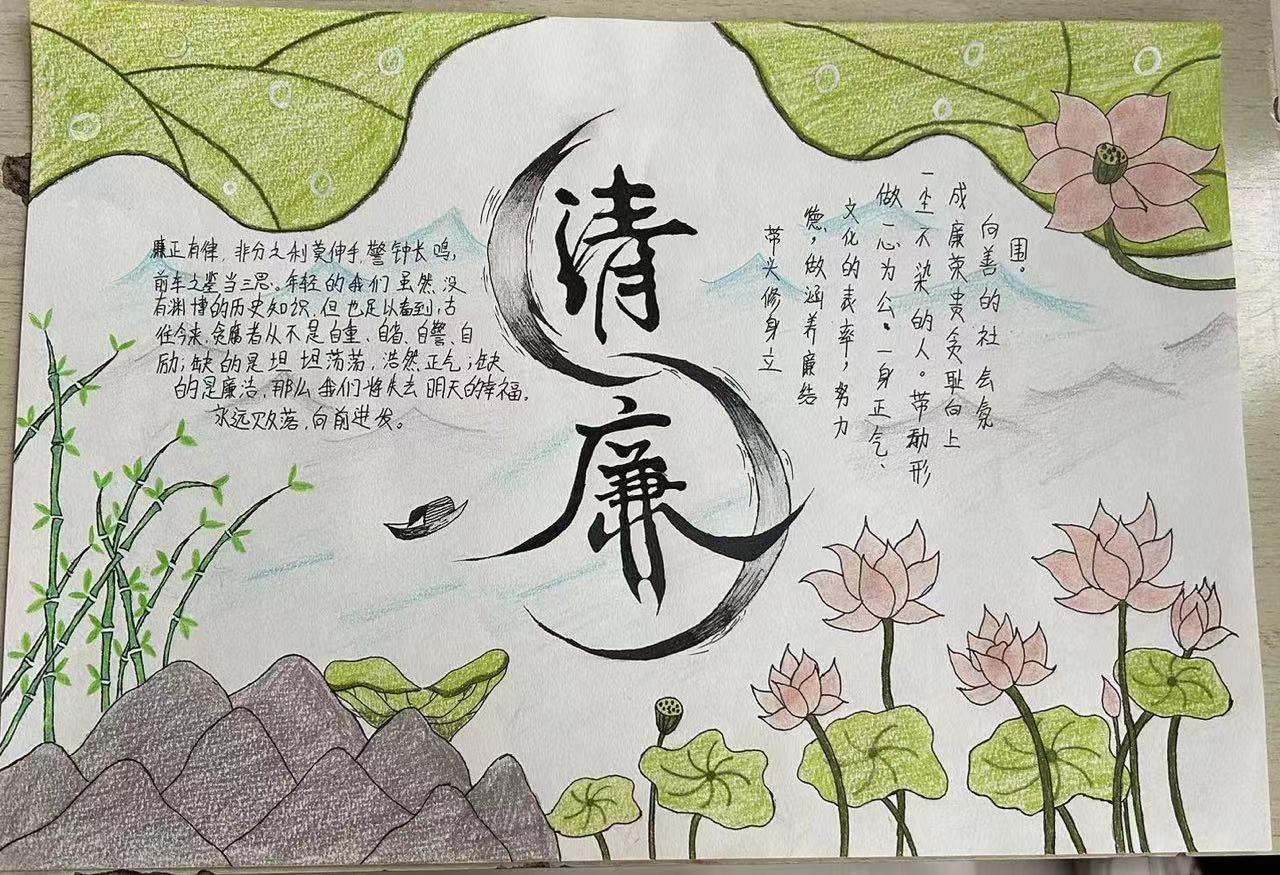 清廉
廉正有律，非分之利莫伸手，警钟长鸣，
前车之鉴当三思。年轻的我们虽然没
有渊博的历史知识，但也足以看到，古
往今来，贪腐者从不是自重、自省、自警、自
励；缺的是坦坦荡荡，浩然正气；缺
的是廉洁，那么我们将失去明天的幸福。
永远败落，向前进发。
带头修身立
德，做涵养廉结
文化的表率，努力
做一心为公。一身正气、
一尘不染的人。带动形
成廉荣贵贪耻向上
向善的社会氛
围。